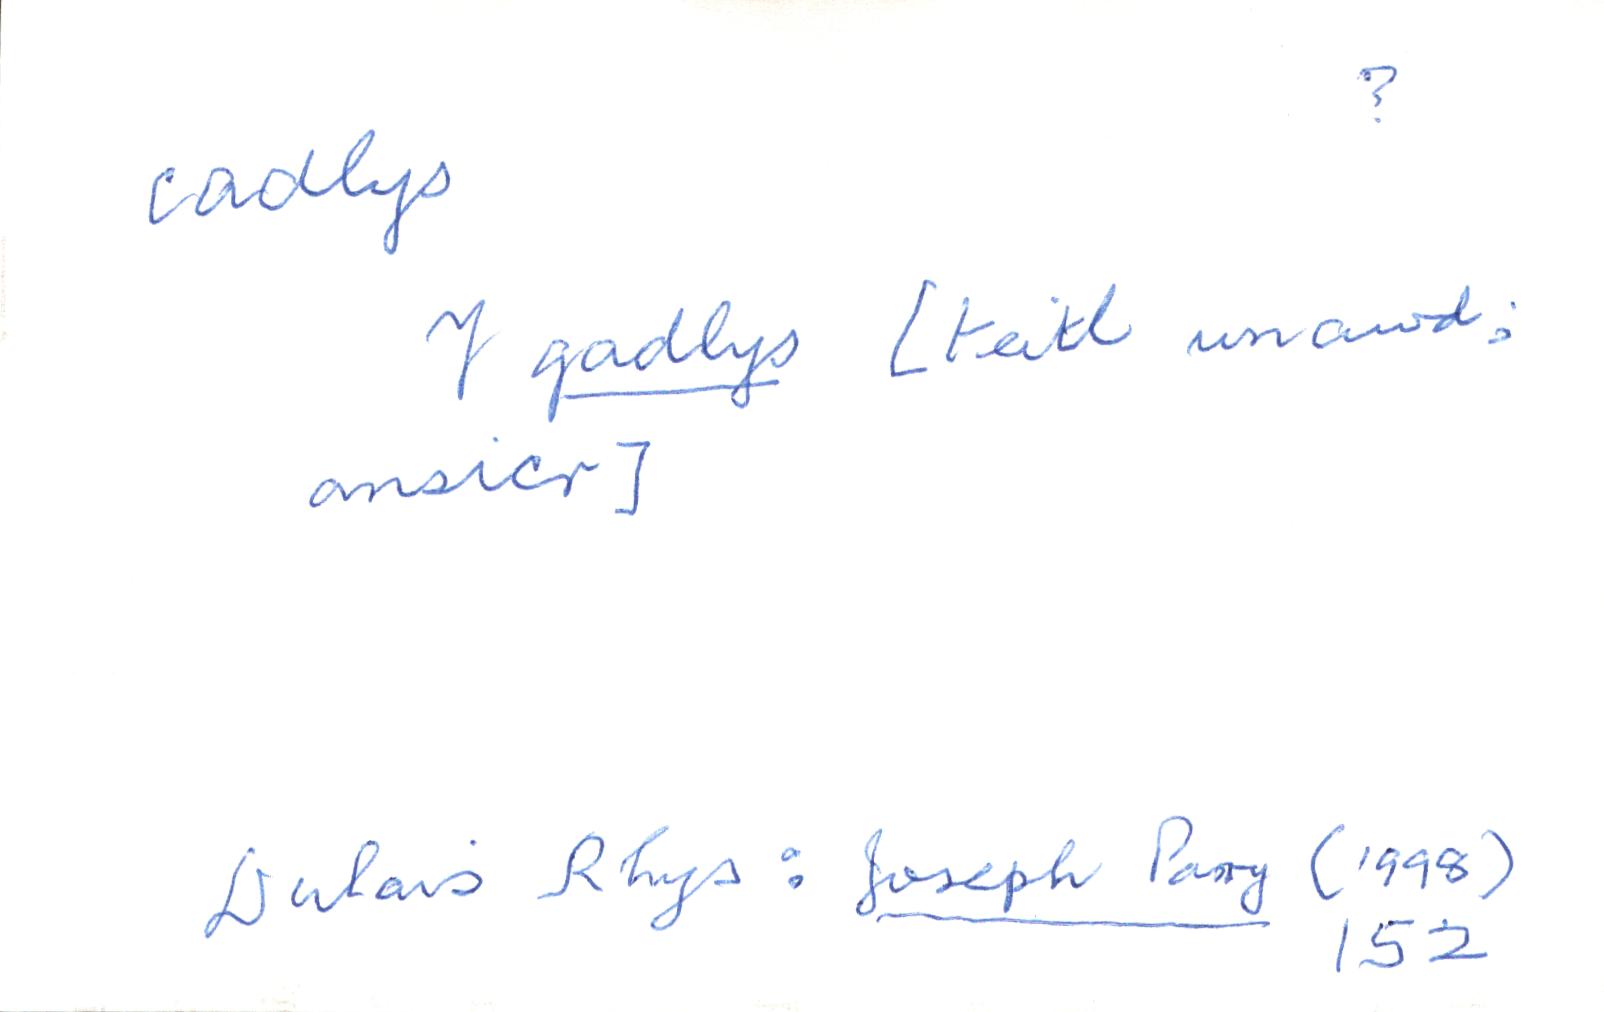 ?
cadlys
Y gadlys [teitl unawd;
ansicr]
Dulais Rhys: Joseph Parry (1998)
152